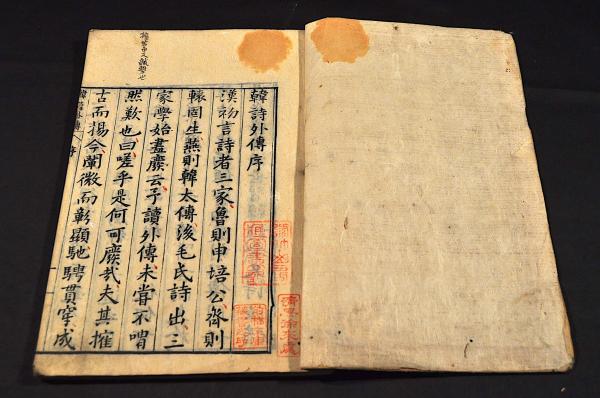 韓詩外傳序
漢初言詩者三家魯則申培公齊則
轅固生燕則韓太傅後毛氏詩出三
家學始盡廢云予讀外傳未嘗不喟
然歎也曰嗟乎是何可廢哉夫其搉
古而揚今闡微而彰顯馳騁貫穿成
韓詩外傳 序